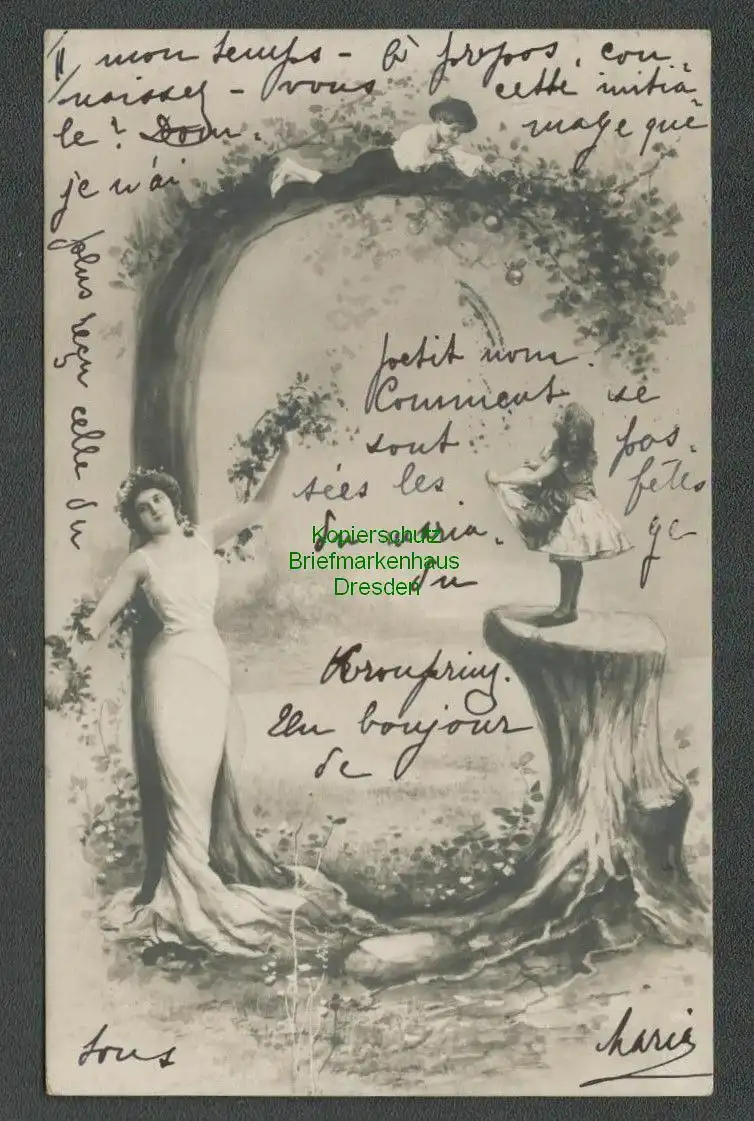 mon temps - à propos, con-
naissez - vous cette initia-
le? Dom-mage que
je n'ai
plus reçu celle du
petit nom.
Comment se
sont pas-
sées les fêtes
du maria-ge
du
Kronprinz.
Un bonjour
de
tous
Maria
Kopierschutz
Briefmarkenhaus
Dresden